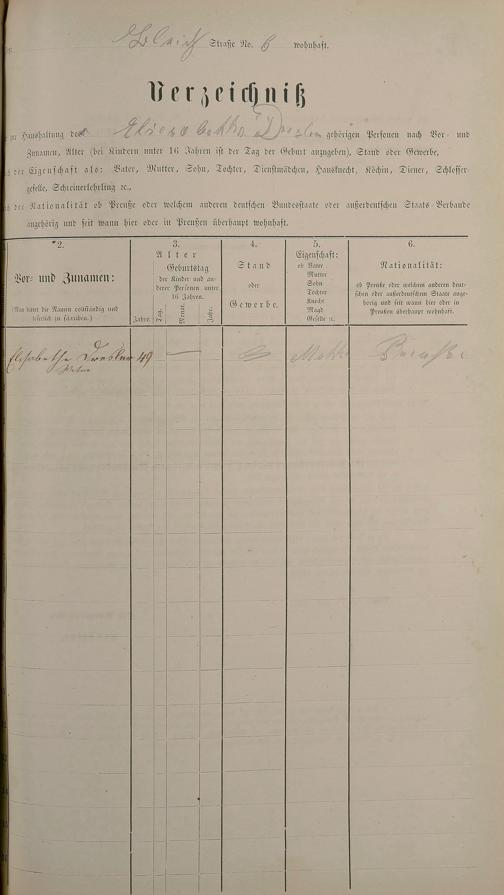 Bleich Straße No. 6 wohnhaft.
Verzeichniß
zur Haushaltung der Elisabetha Dresler gehörigen Personen nach Vor- und
Zunamen, Alter (bei Kindern unter 16 Jahren ist der Tag der Geburt anzugeben), Stand oder Gewerbe,
nach der Eigenschaft als: Vater, Mutter, Sohn, Tochter, Dienstmädchen, Hausknecht, Köchin, Diener, Schlosser-
geselle, Schreinerlehrling ꝛc.,
nach der Nationalität ob Preuße oder welchem anderen deutschen Bundesstaate oder außerdeutschen Staats-Verbande
angehörig und seit wann hier oder in Preußen überhaupt wohnhaft.
*2.
Vor- und Zunamen:
(Man bittet die Namen vollständig und
leserlich zu schreiben.)
3.
Alter
Geburtstag
der Kinder und an-
derer Personen unter
16 Jahren.
Jahre.
Tag.
Monat.
Jahr.
4.
Stand
oder
Gewerbe.
5.
Eigenschaft:
ob Vater
Mutter
Sohn
Tochter
Knecht
Magd
Geselle ꝛc.
6.
Nationalität:
ob Preuße oder welchem anderen deut-
schen oder außerdeutschen Staate ange-
hörig und seit wann hier oder in
Preußen überhaupt wohnhaft.
Elisabethe Dresler 49 — Preuße
Witwe